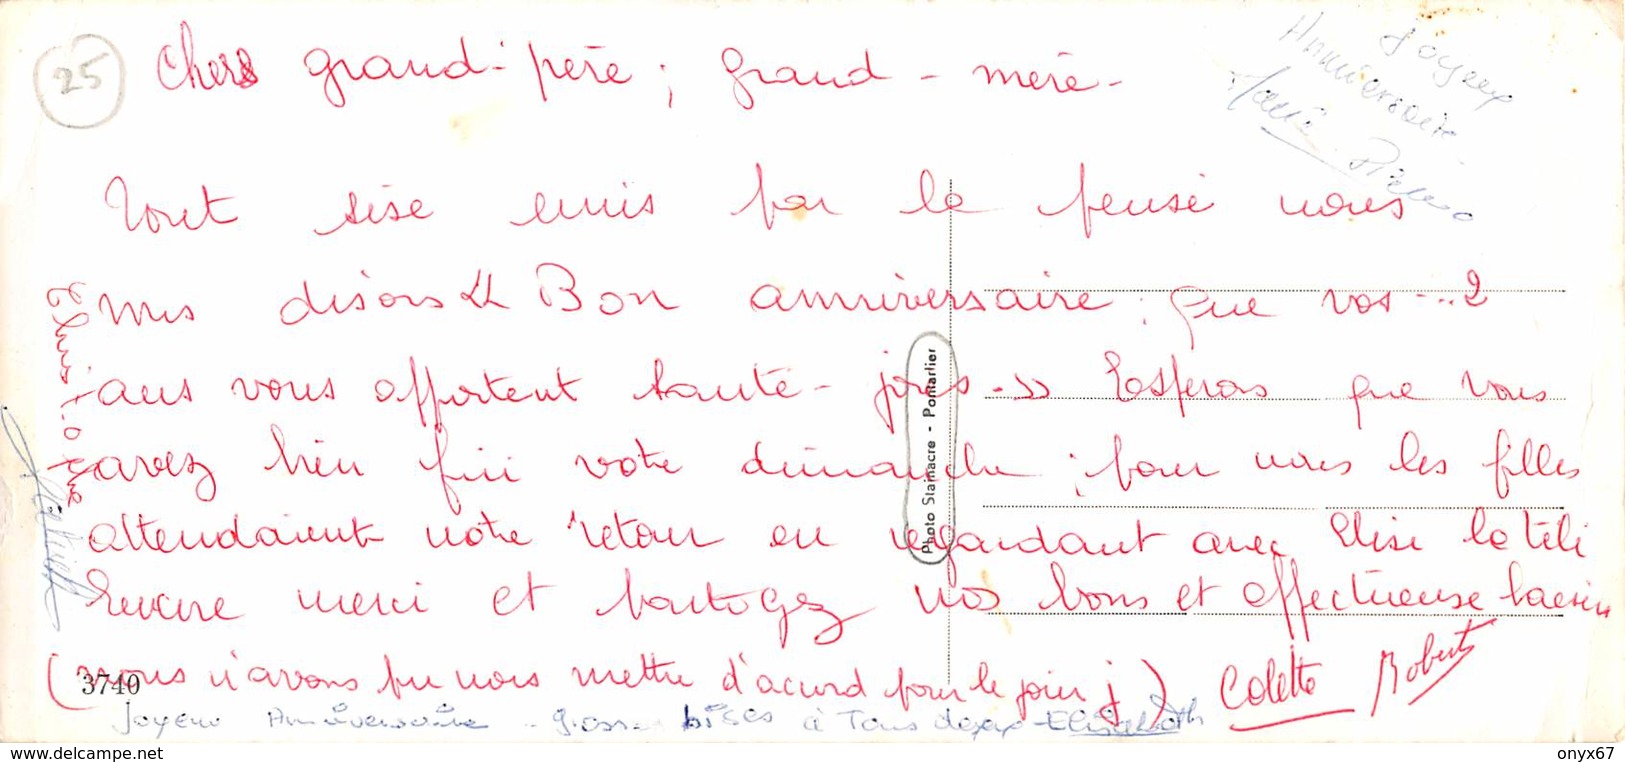 25
Chers grand-père ; grand-mère -
Joyeux
Anniversaire
Bruno
Tout unis par la pensé nous
disons « Bon anniversaire ; que vos ... 2
ans vous apportent santé - joies - » Espérons que vous
avez bien fini votre dimanche ; pour nous les filles
attendaient notre retour en regardant avec Elise la télé
Encore merci et partagez nos bons et affectueuse baisers
(nous n'avons pu nous mettre d'accord pour le jour j) Colette Robert
3740
Joyeux Anniversaire - grosses bises à Tous deux - Elisabeth
Photo Stainacre - Pontarlier
delcampe.net
onyx67